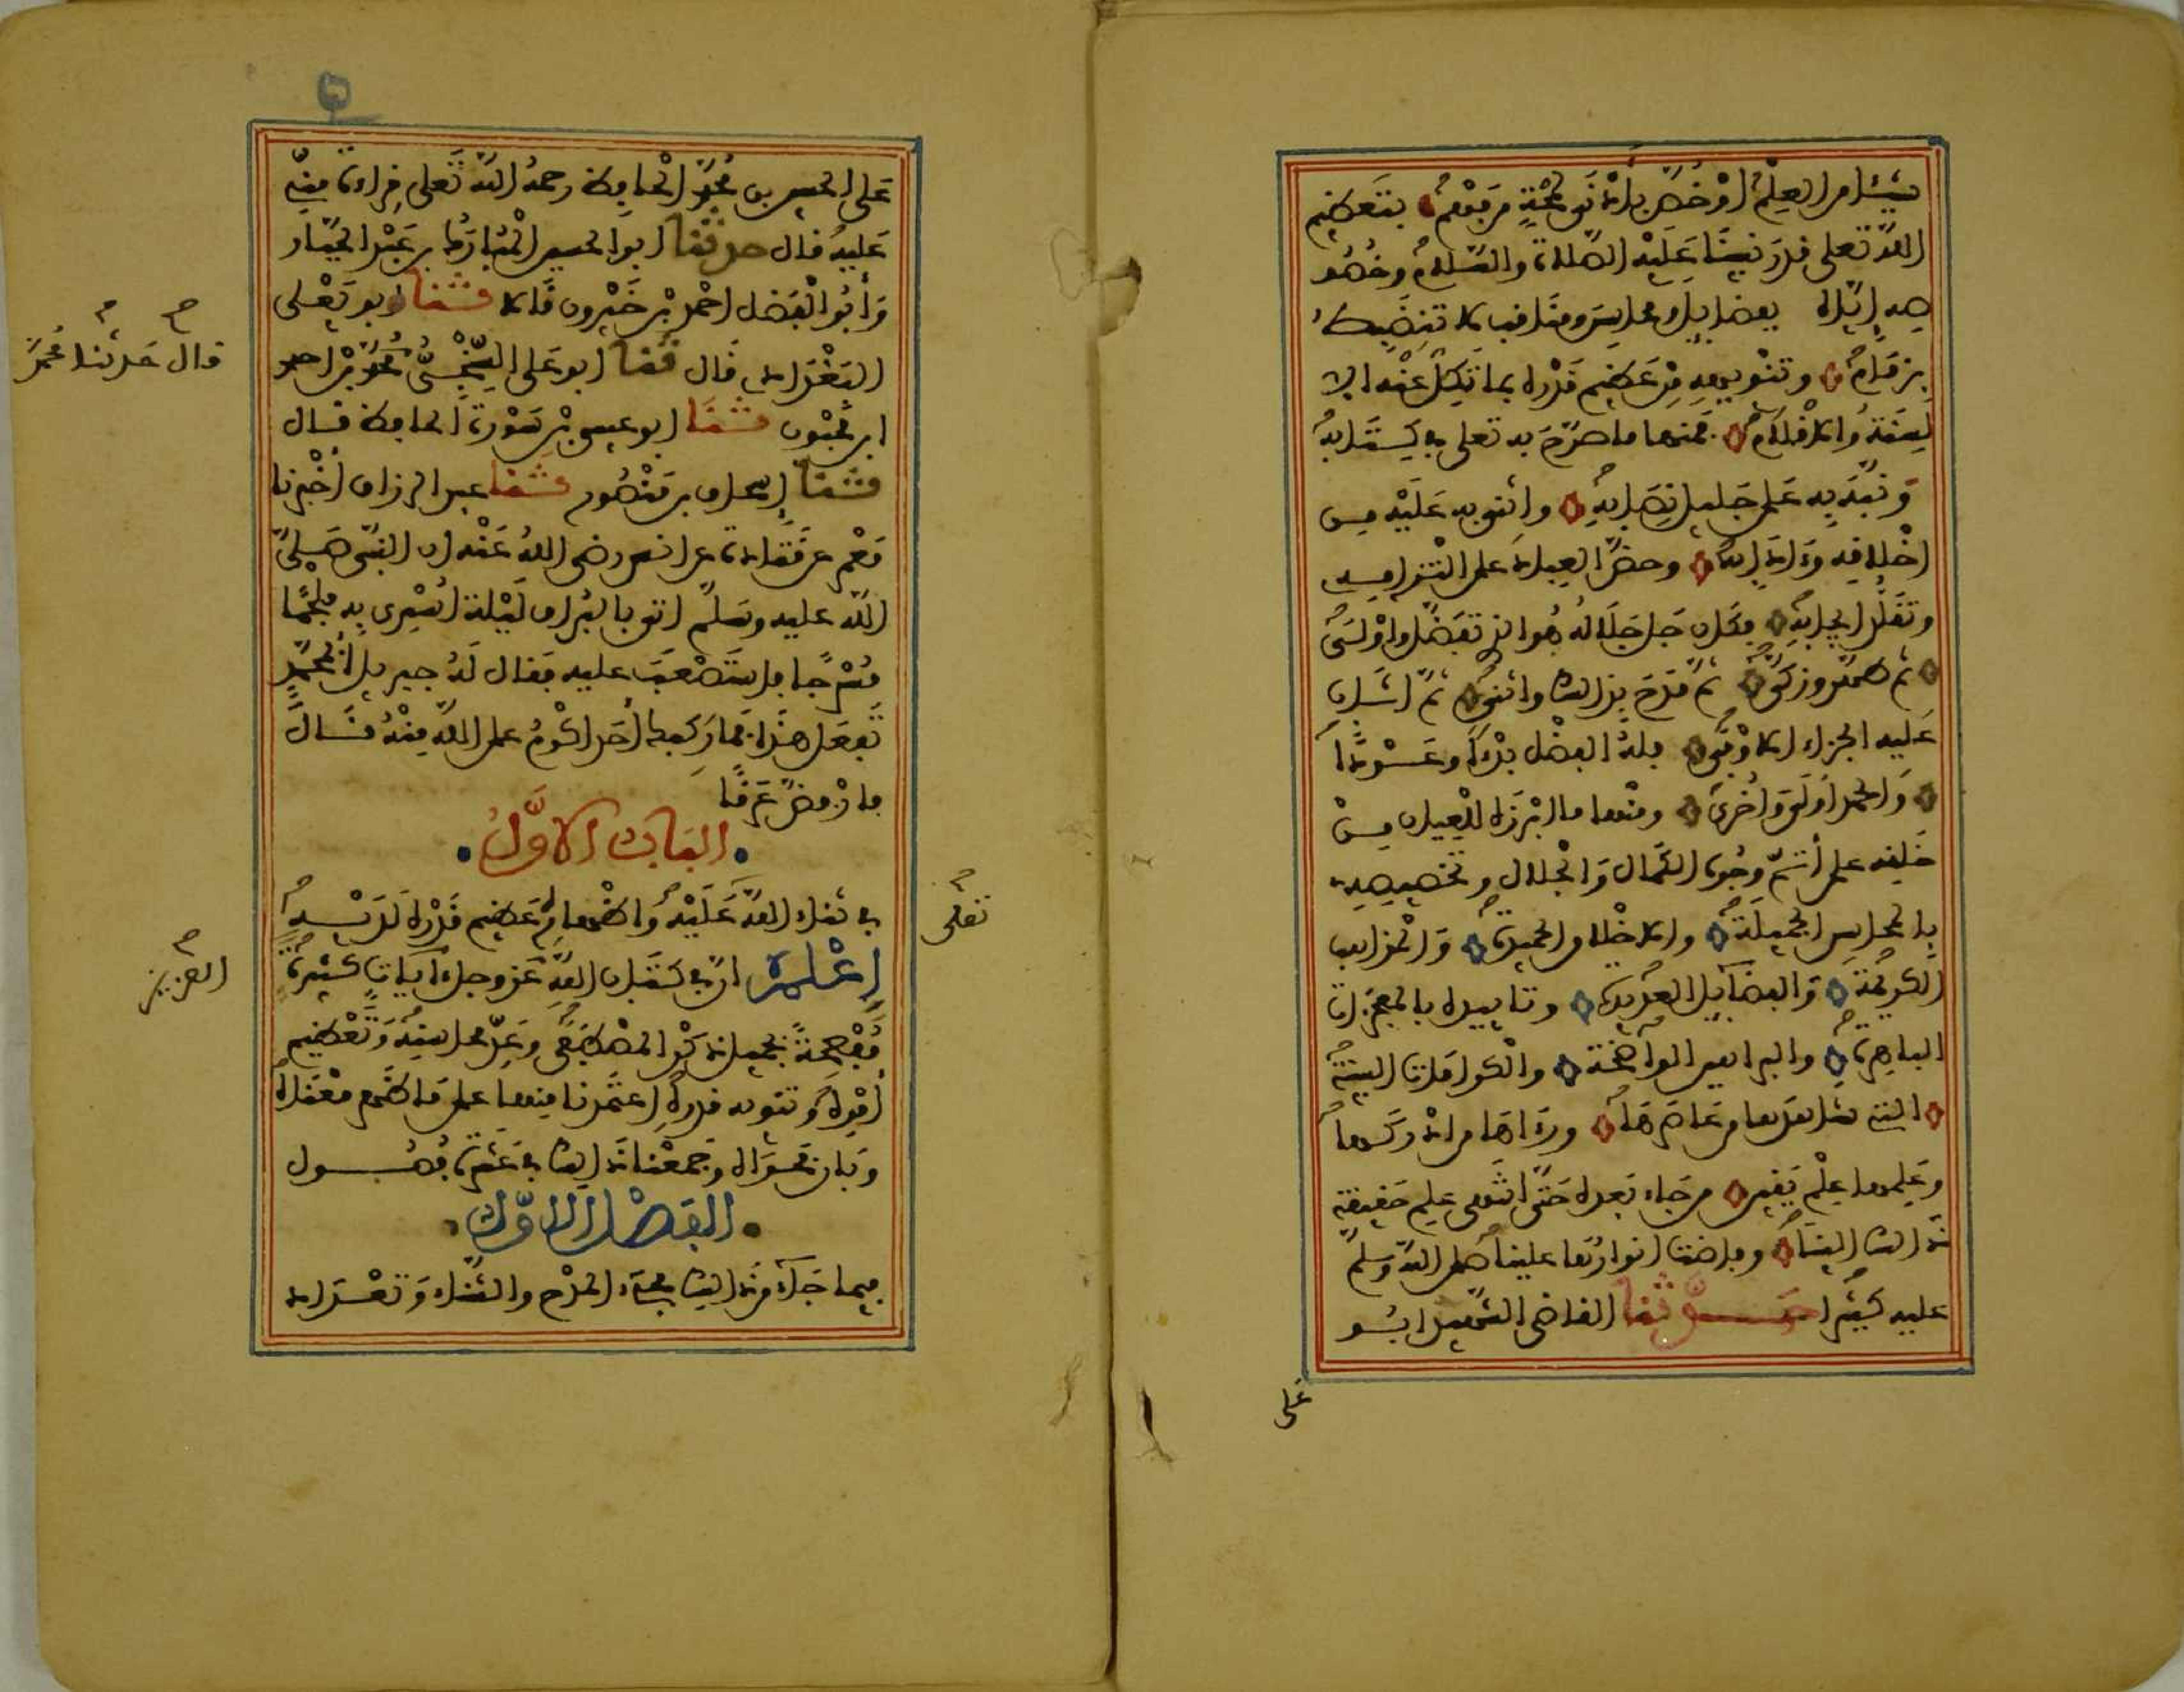 شيئا من العلم أو خص بأدنى لمحة من فهم بتعظيم
الله تعلى قدر نبينا عليه الصلاة والسلام وخصو
صه إياه بفضايل ومحاسن ومناقب لا تنضبط
بزمام وتنويهه من عظيم قدره بما تكل عنه الا
لسنة والاقلام فمنها ما صرح به تعلى في كتابه
ونبه به على جليل نصابه واثنى به عليه من
اخلاقه وءادابه وحض العباد على التزامه
وتقلد ايجابه فكان جل جلاله هو الذي تفضل واولى
ثم طهر وزكى ثم مدح بذالك واثنى ثم اثاب
عليه الجزاء الاوفى فله الفضل بدءا وعودا
والحمد أولى وأخرى ومنها ما ابرزه للعيان من
خلقه على أتم وجوه الكمال والجلال وتخصيصه
بالمحاسن الجميلة والاخلاق الحميدة والمذاهب
الكريمة والفضايل العديدة وتاييده بالمعجزات
الباهرة والبراهين الواضحة والكرامات البينة
التي شاهدها من عاصرها ورءاها من ادركها
وعلمها علم يقين من جاء بعده حتى انتهى علم حقيقة
ذالك الينا وفاضت انوارها علينا صلى الله وسلم
عليه كثيرا حدثنا القاضي الشهيد ابو
على
على الحسين بن محمد الحافظ رحمه الله تعلى قراءة مني
عليه قال حدثنا ابو الحسين المبارك بن عبد الجبار
وأبو الفضل احمد بن خيرون قالا حدثنا ابو يعلى
البغدادي قال حدثنا ابو على السنجي محمد بن احمد
ابن محبوب حدثنا ابو عيسى بن سورة الحافظ قال
حدثنا إسحاق بن منصور حدثنا عبد الرزاق أخبرنا
معمر عن قتادة عن انس رضي الله عنه ان النبي صلى
الله عليه وسلم اتي بالبراق ليلة اسري به ملجما
مسرجا فاستصعب عليه فقال له جبريل أبمحمد
تفعل هذا فما ركبك أحد اكرم على الله منه قال
فارفض عرقا
الباب الاول
في ثناء الله عليه واظهاره عظيم قدره لديه
اعلم ان في كتاب الله عز وجل ءايات كثيرة
مفصحة بجميل ذكر المصطفى وعد محاسنه وتعظيم
أمره وتنويه قدره اعتمدنا منها على ما ظهر معناه
وبان فحواه وجمعنا ذالك في عشرة فصول
الفصل الاول
فيما جاء من ذالك مجيء المدح والثناء وتعداد
قال حدثنا محمد
تعلى
العزيز